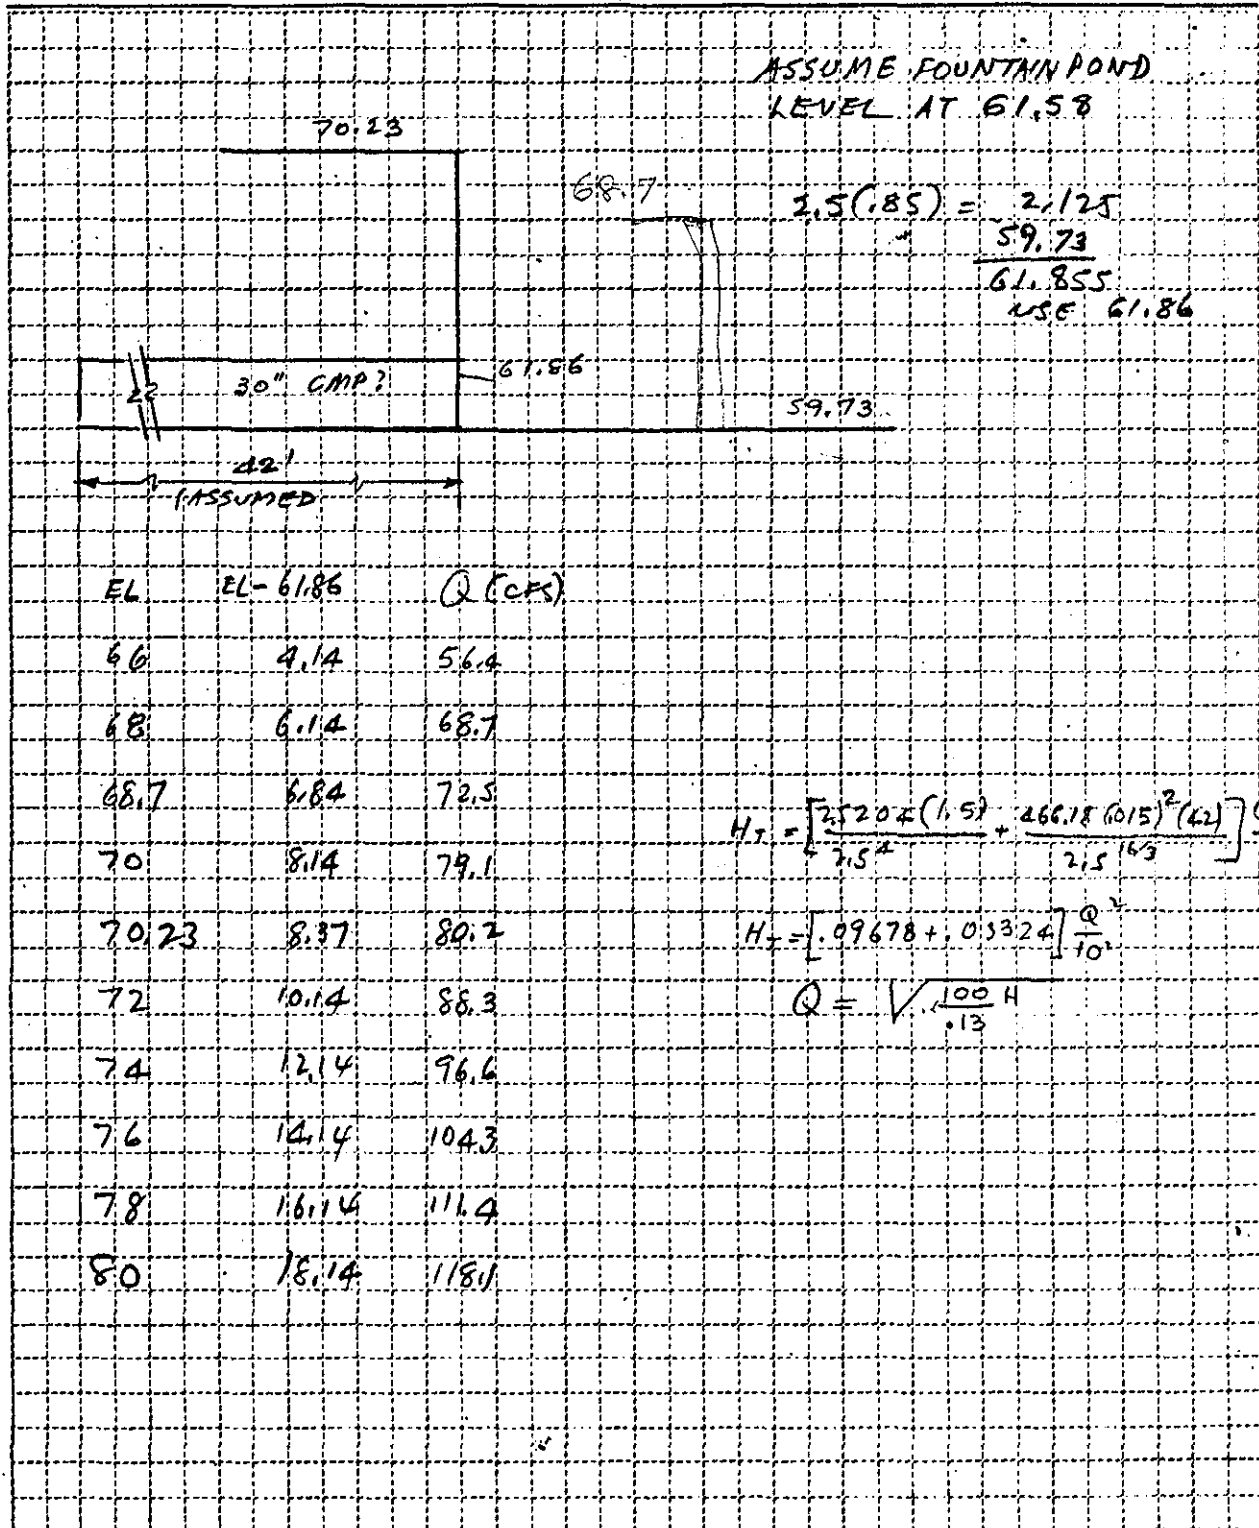 ASSUME FOUNTAIN POND
LEVEL AT 61.58
70.23
68.7
2.5(.85) = 2.125
59.73
61.855
USE 61.86
30" CMP?
61.86
59.73
42'
(ASSUMED
EL EL-61.86 Q (CFS)
66 4.14 56.4
68 6.14 68.7
68.7 6.84 72.5
70 8.14 79.1
70.23 8.37 80.2
72 10.14 88.3
74 12.14 96.6
76 14.14 104.3
78 16.14 111.4
80 18.14 118.1
HT = [2.5204(1.5)/2.5^4 + 466.18(.015)^2(42)/2.5^16/3]
HT = [.09678 + .03324] Q^2/10^2
Q = √(100 H/.13)